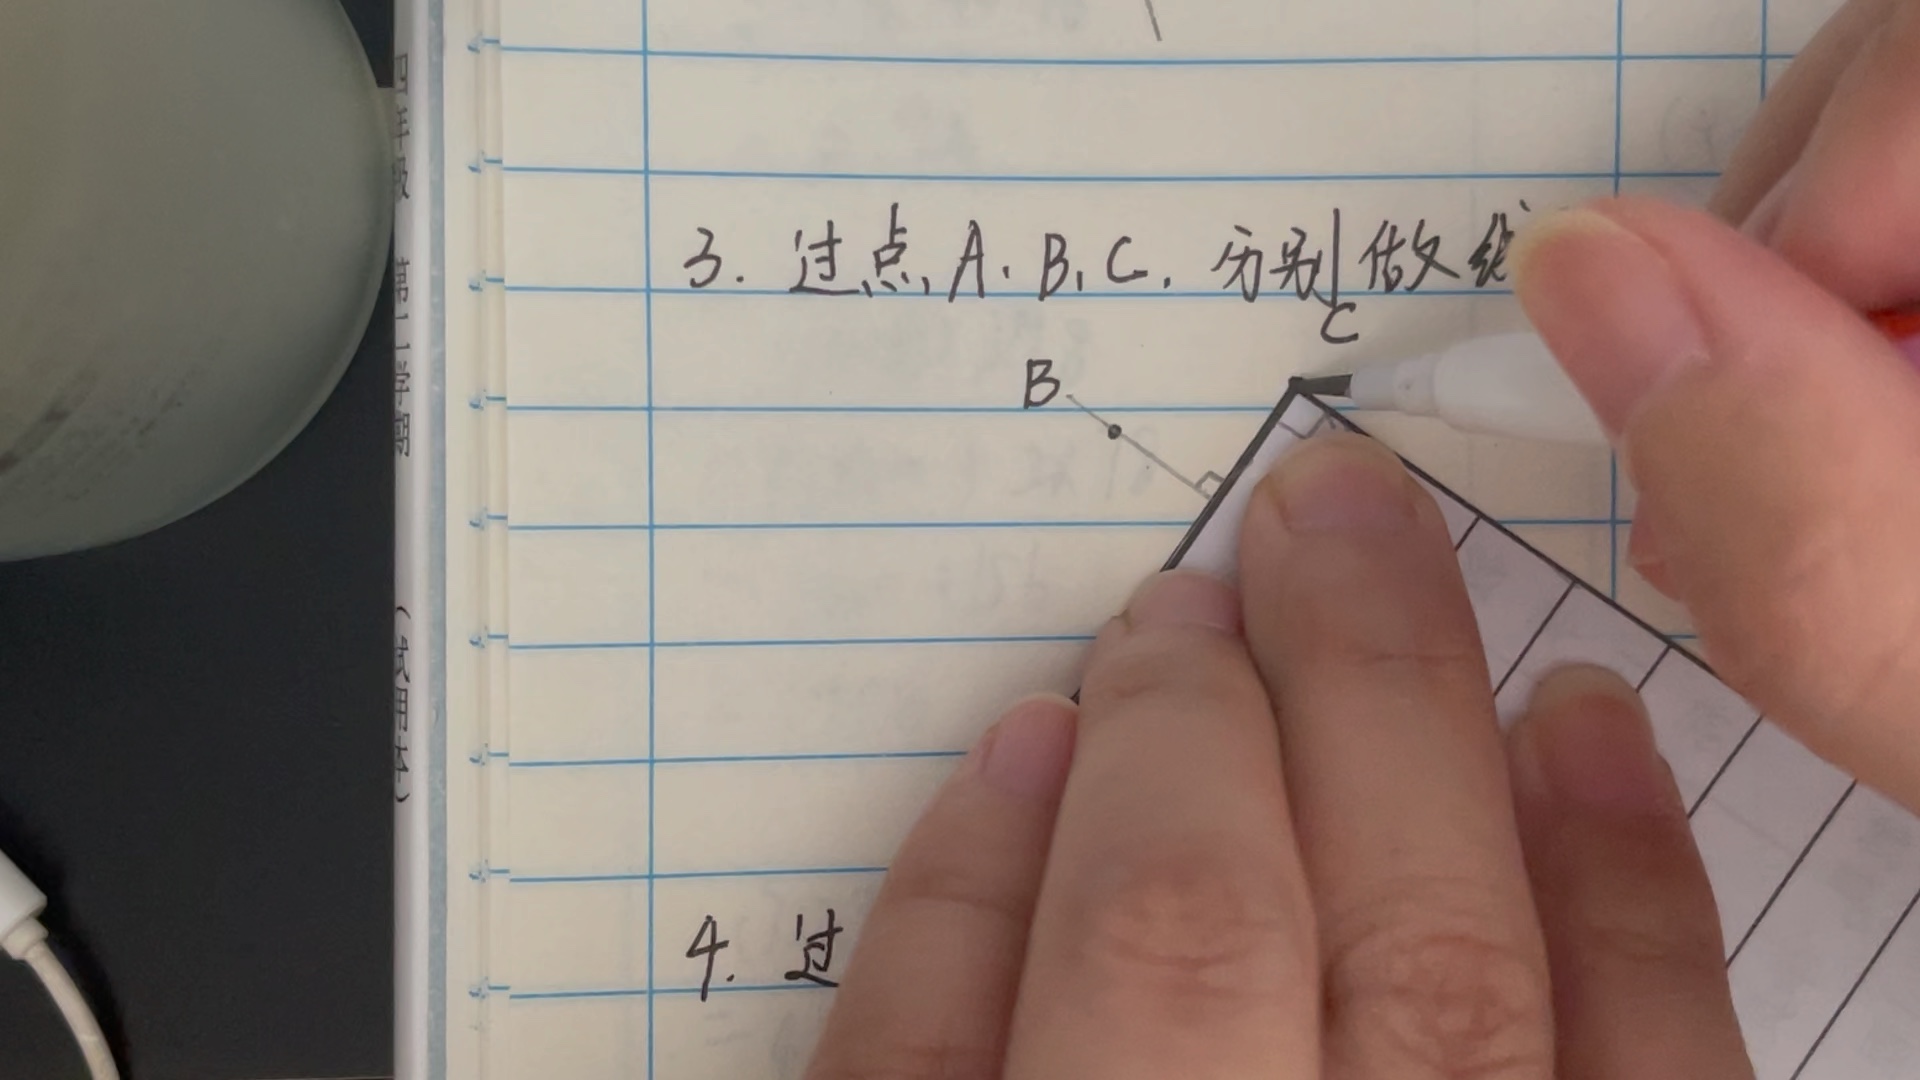 四年级 第二学期 (试用本)
3. 过点 A、B、C. 分别做线
C
B
4. 过